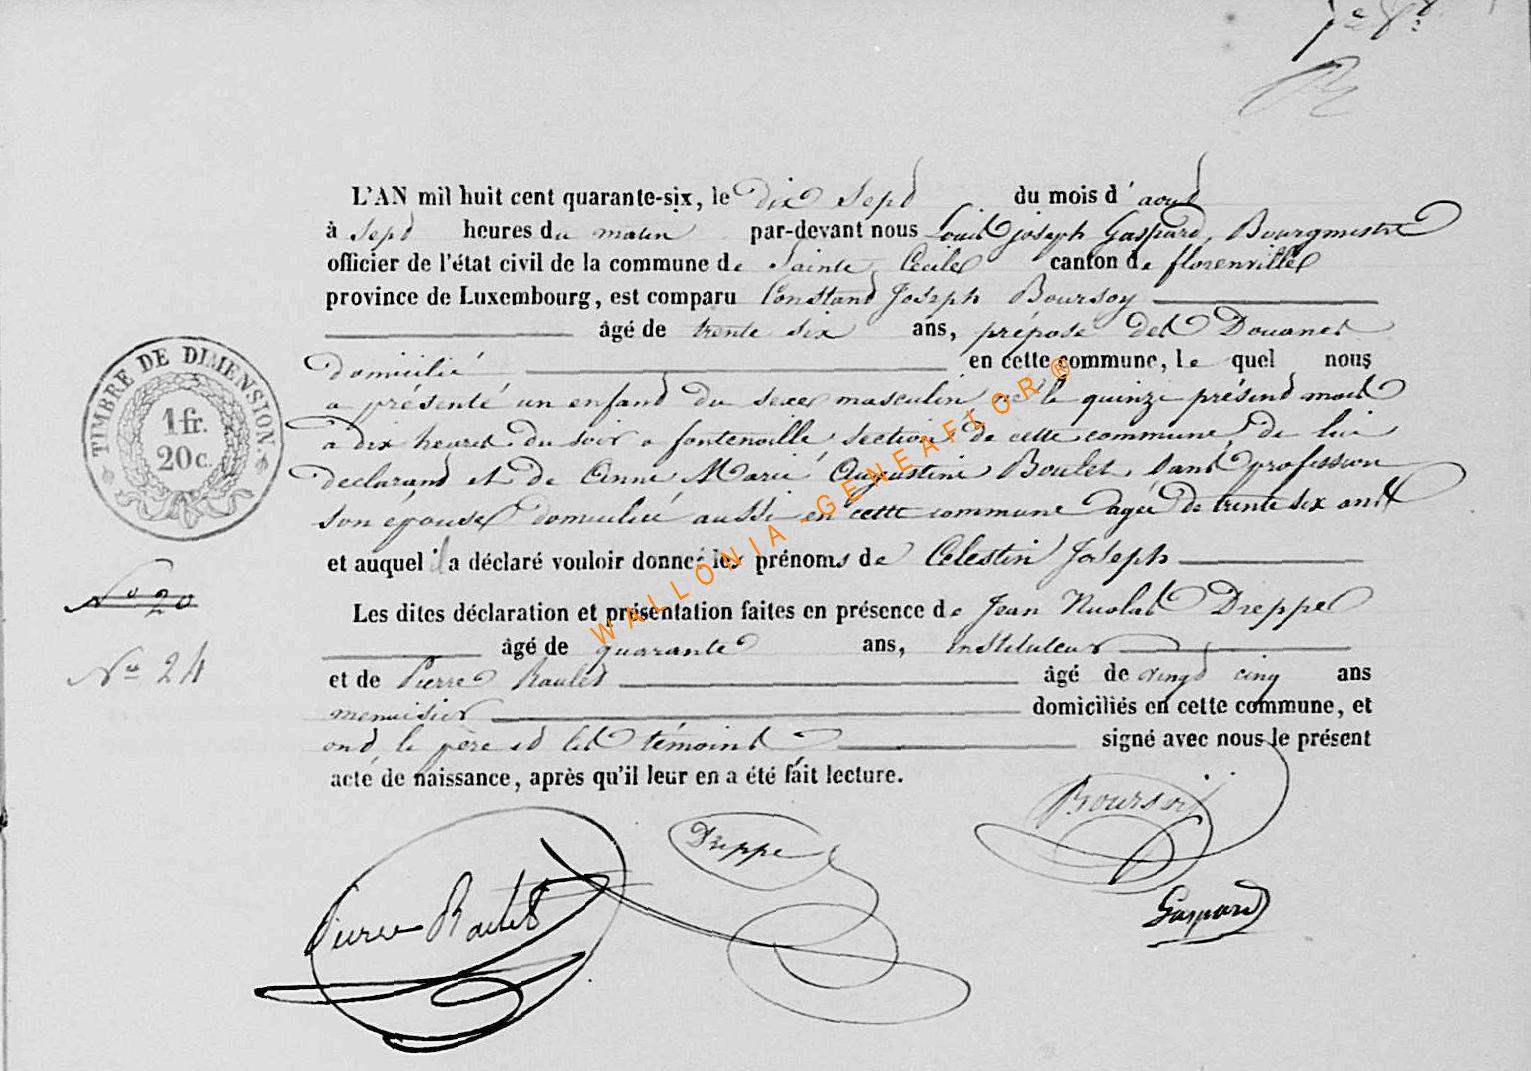 L'AN mil huit cent quarante-six, le dix sept du mois d'aout
à sept heures du matin par-devant nous Louis joseph Gaspard, Bourgmestre
officier de l'état civil de la commune de Sainte Cecile canton de florenville
province de Luxembourg, est comparu Constant Joseph Boursoy
âgé de trente six ans, préposé des Douanes
domicilié en cette commune, le quel nous
a présenté un enfant du sexe masculin né le quinze présent mois
à dix heures du soir a fontenoille, section de cette commune, de lui
declarant et de Marie Augustine Boulet, sans profession
son épouse domiciliée aussi en cette commune agée de trente six ans
et auquel il a déclaré vouloir donner les prénoms de Celestin Joseph
Les dites déclaration et présentation faites en présence de Jean Nicolas Dreppe
âgé de quarante ans, instituteur
et de Pierre Raulet âgé de vingt cinq ans
menuisier domiciliés en cette commune, et
ont le père et les témoins signé avec nous le présent
acte de naissance, après qu'il leur en a été fait lecture.
TIMBRE DE DIMENSION.
1 fr.
20 c.
No 20
No 24
Boursoy
Dreppe
Pierre Raulet
Gaspard
WALLONIA-GENEAFLOR®